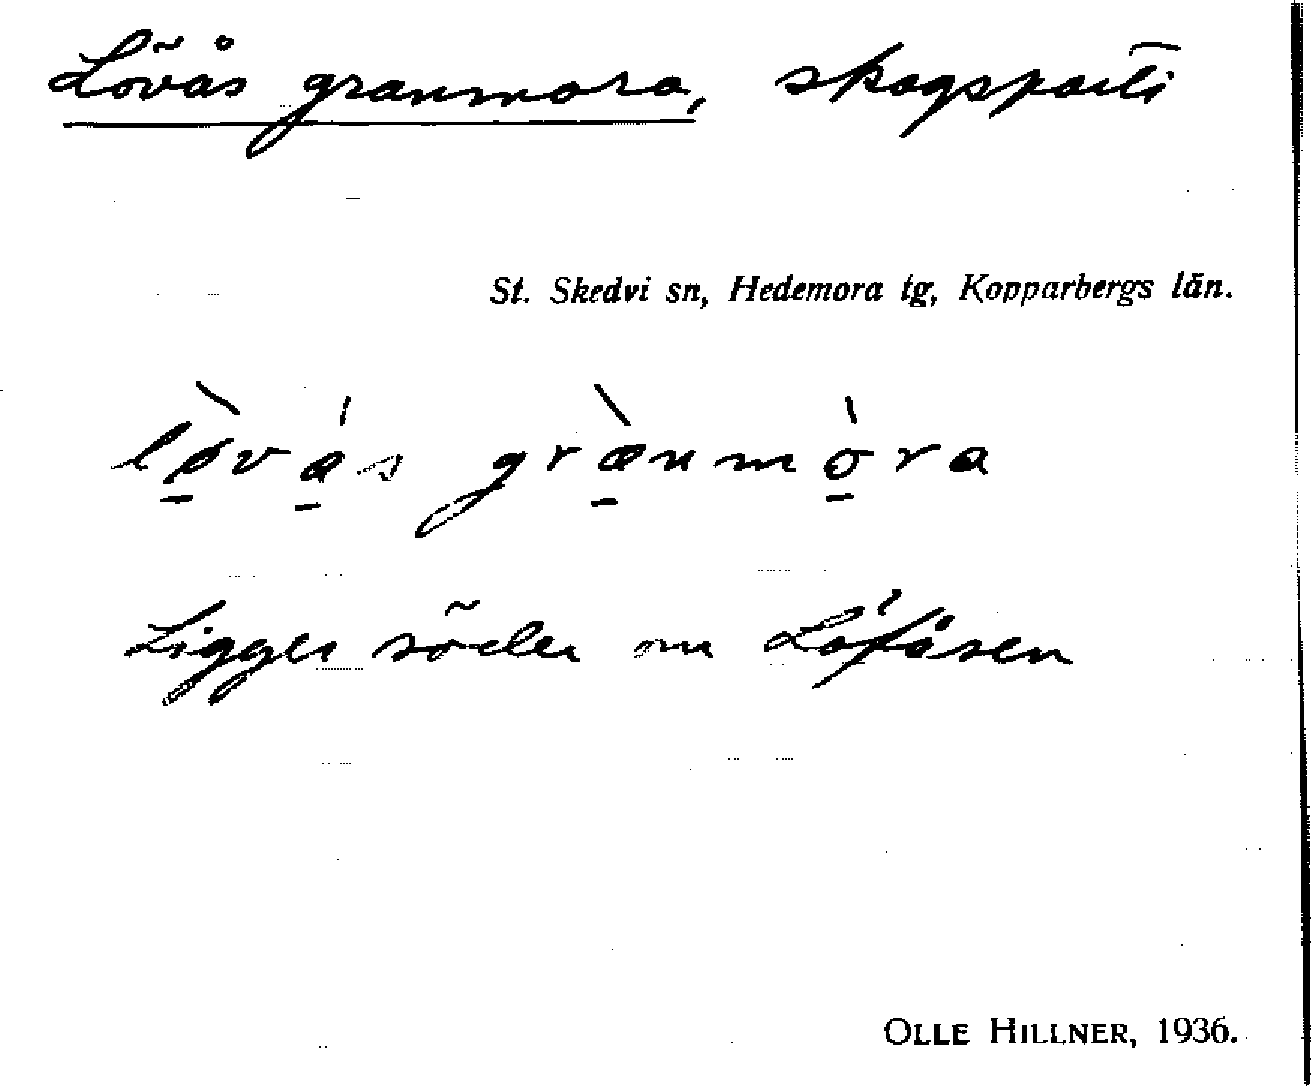 Lövås granmora, skogsparti
St. Skedvi sn, Hedemora tg, Kopparbergs län.
lø̠̀vá̠s græ̠̀nmò̠ra
Ligger söder om Löfåsen
OLLE HILLNER, 1936.